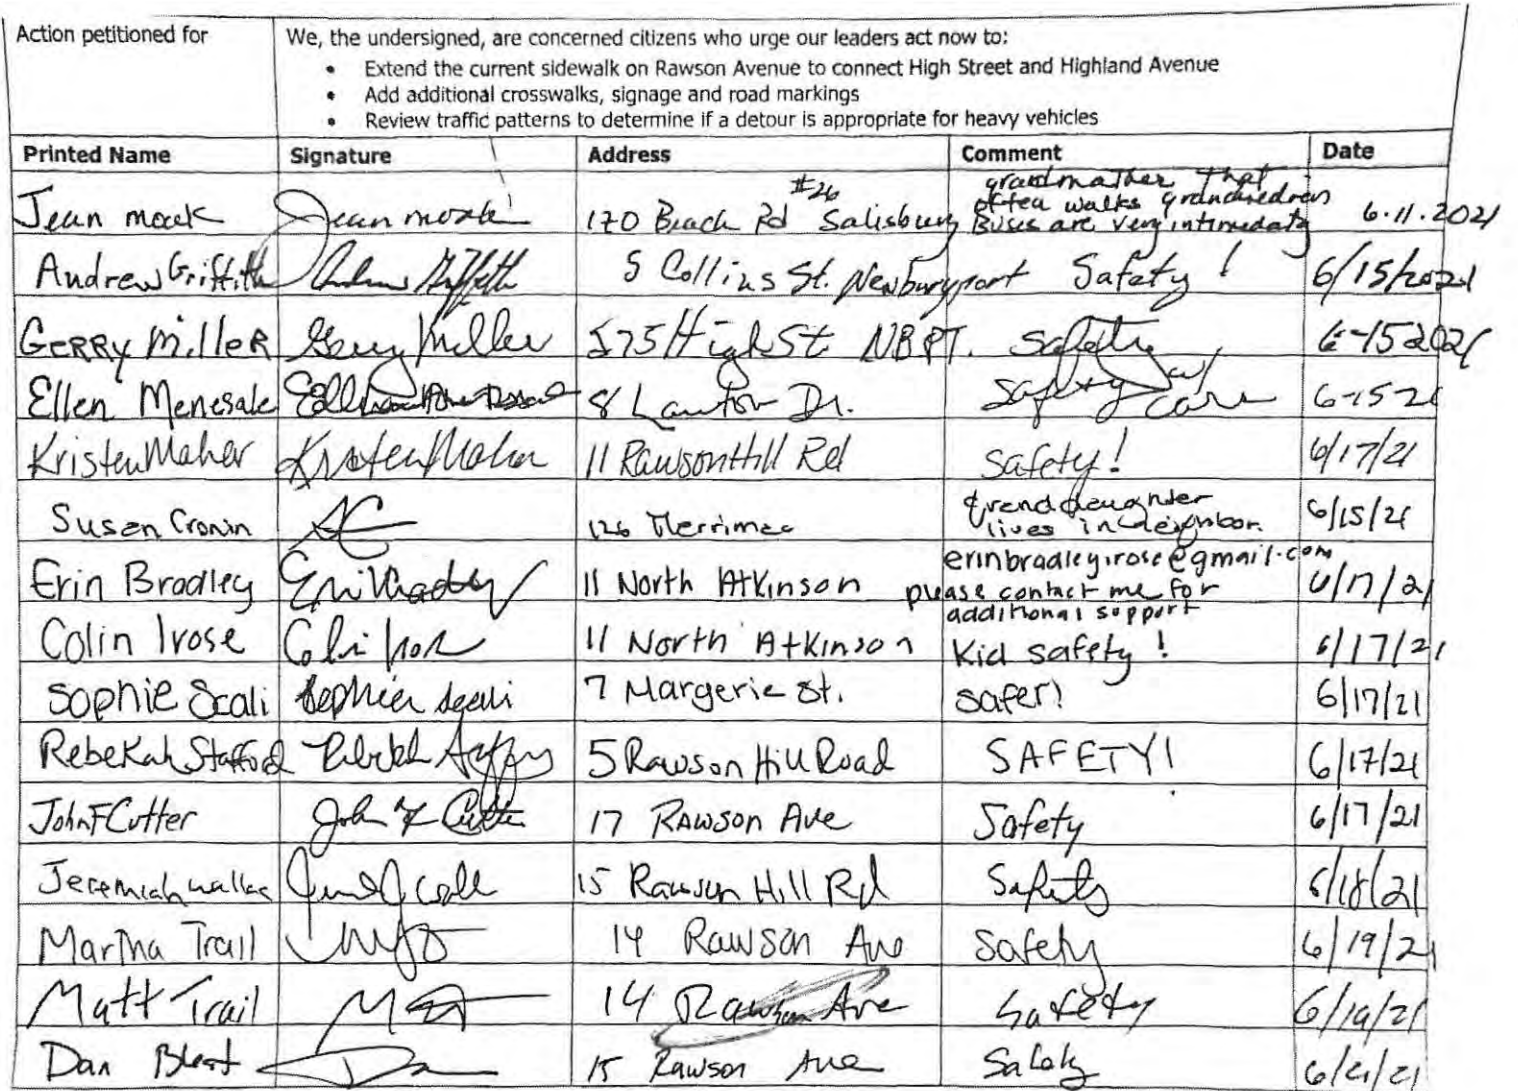 Action petitioned for
We, the undersigned, are concerned citizens who urge our leaders act now to:
• Extend the current sidewalk on Rawson Avenue to connect High Street and Highland Avenue
• Add additional crosswalks, signage and road markings
• Review traffic patterns to determine if a detour is appropriate for heavy vehicles
Printed Name Signature Address Comment Date
Jean 170 Beach Rd #26 Salisbury grandmother that
often walks
Buses are very 6.11.2021
Andrew Griffith Andrew Griffith 5 Collins St. Newburyport Safety! 6/15/2021
GERRY MilleR Gerry Miller High St NBPT. Safety 6-15 2021
Ellen 8 Dr. Safety w/
Care 6-15 21
Kristen Maher Kristen Maher 11 Rawson Hill Rd Safety! 6/17/21
Susan Cronin SC 126 Merrimac Granddaughter
lives in neighbor. 6/15/21
Erin Bradley Erin Bradley 11 North Atkinson erinbradleyirose@gmail.com
please contact me for
additional support 6/17/21
Colin Irose Colin Irose 11 North Atkinson Kid safety! 6/17/21
Sophie Scali Sophie Scali 7 Margerie St. Safer! 6/17/21
Rebekah Stafford 5 Rawson Hill Road SAFETY! 6/17/21
John F Cutter John F Cutter 17 Rawson Ave Safety 6/17/21
Jeremiah 15 Rawson Hill Rd Safety 6/18/21
Martha Trail 14 Rawson Ave Safety 6/19/21
Matt Trail 14 Rawson Ave Safety 6/19/21
Dan 15 Rawson Ave Safety 6/21/21